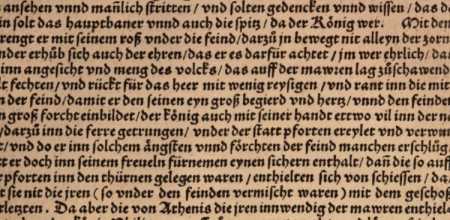 ansehen vnnd mañlich stritten / vnd solten gedencken vnnd wissen / das d
in solt das hauptbaner vnnd auch die spitz / da der König wer. Mit den
rengt er mit seinem roß vnder die feind / darzů jn bewegt nit alleyn der zorn
nder erhůb sich auch der ehren / das er es darfür achtet / jm wer ehrlich / da
inn angesicht vnd meng des volcks / das auff der mawren lag zůschawend
lt fechten / vnd rückt für das heer mit wenig reysigen / vnd rant inn die mit
n der feind / damit er den seinen eyn groß begierd vnd hertz / vnnd den feinden
n groß forcht einbildet / der König auch mit seiner handt ettwo vil inn der na
/ darzů inn die ferre getrungen / vnder der statt pforten ereylet vnd verwun
t / vnd do er inn solchem ängsten vnnd förchten der feind manchen erschlůg /
tt er doch inn seinem freueln fürnemen eynen sichern enthalt / dañ die so auff
pforten inn den thürnen gelegen waren / enthielten sich von schiessen / da
t sie nit die jren ( so vnder den feinden vermischt waren ) mit dem geschoß
rletzten. Da aber die von Athenis die jren innwendig der mawren enthiel